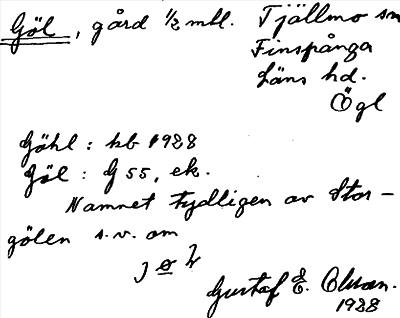 Göl, gård 1/2 mtl. Tjällmo sn
Finspånga
läns hd.
Ögl
Göhl : kb 1928
Göl : G 55, ek.
Namnet tydligen av Stor-
gölen s.v. om
Gustaf E. Olsson.
1928